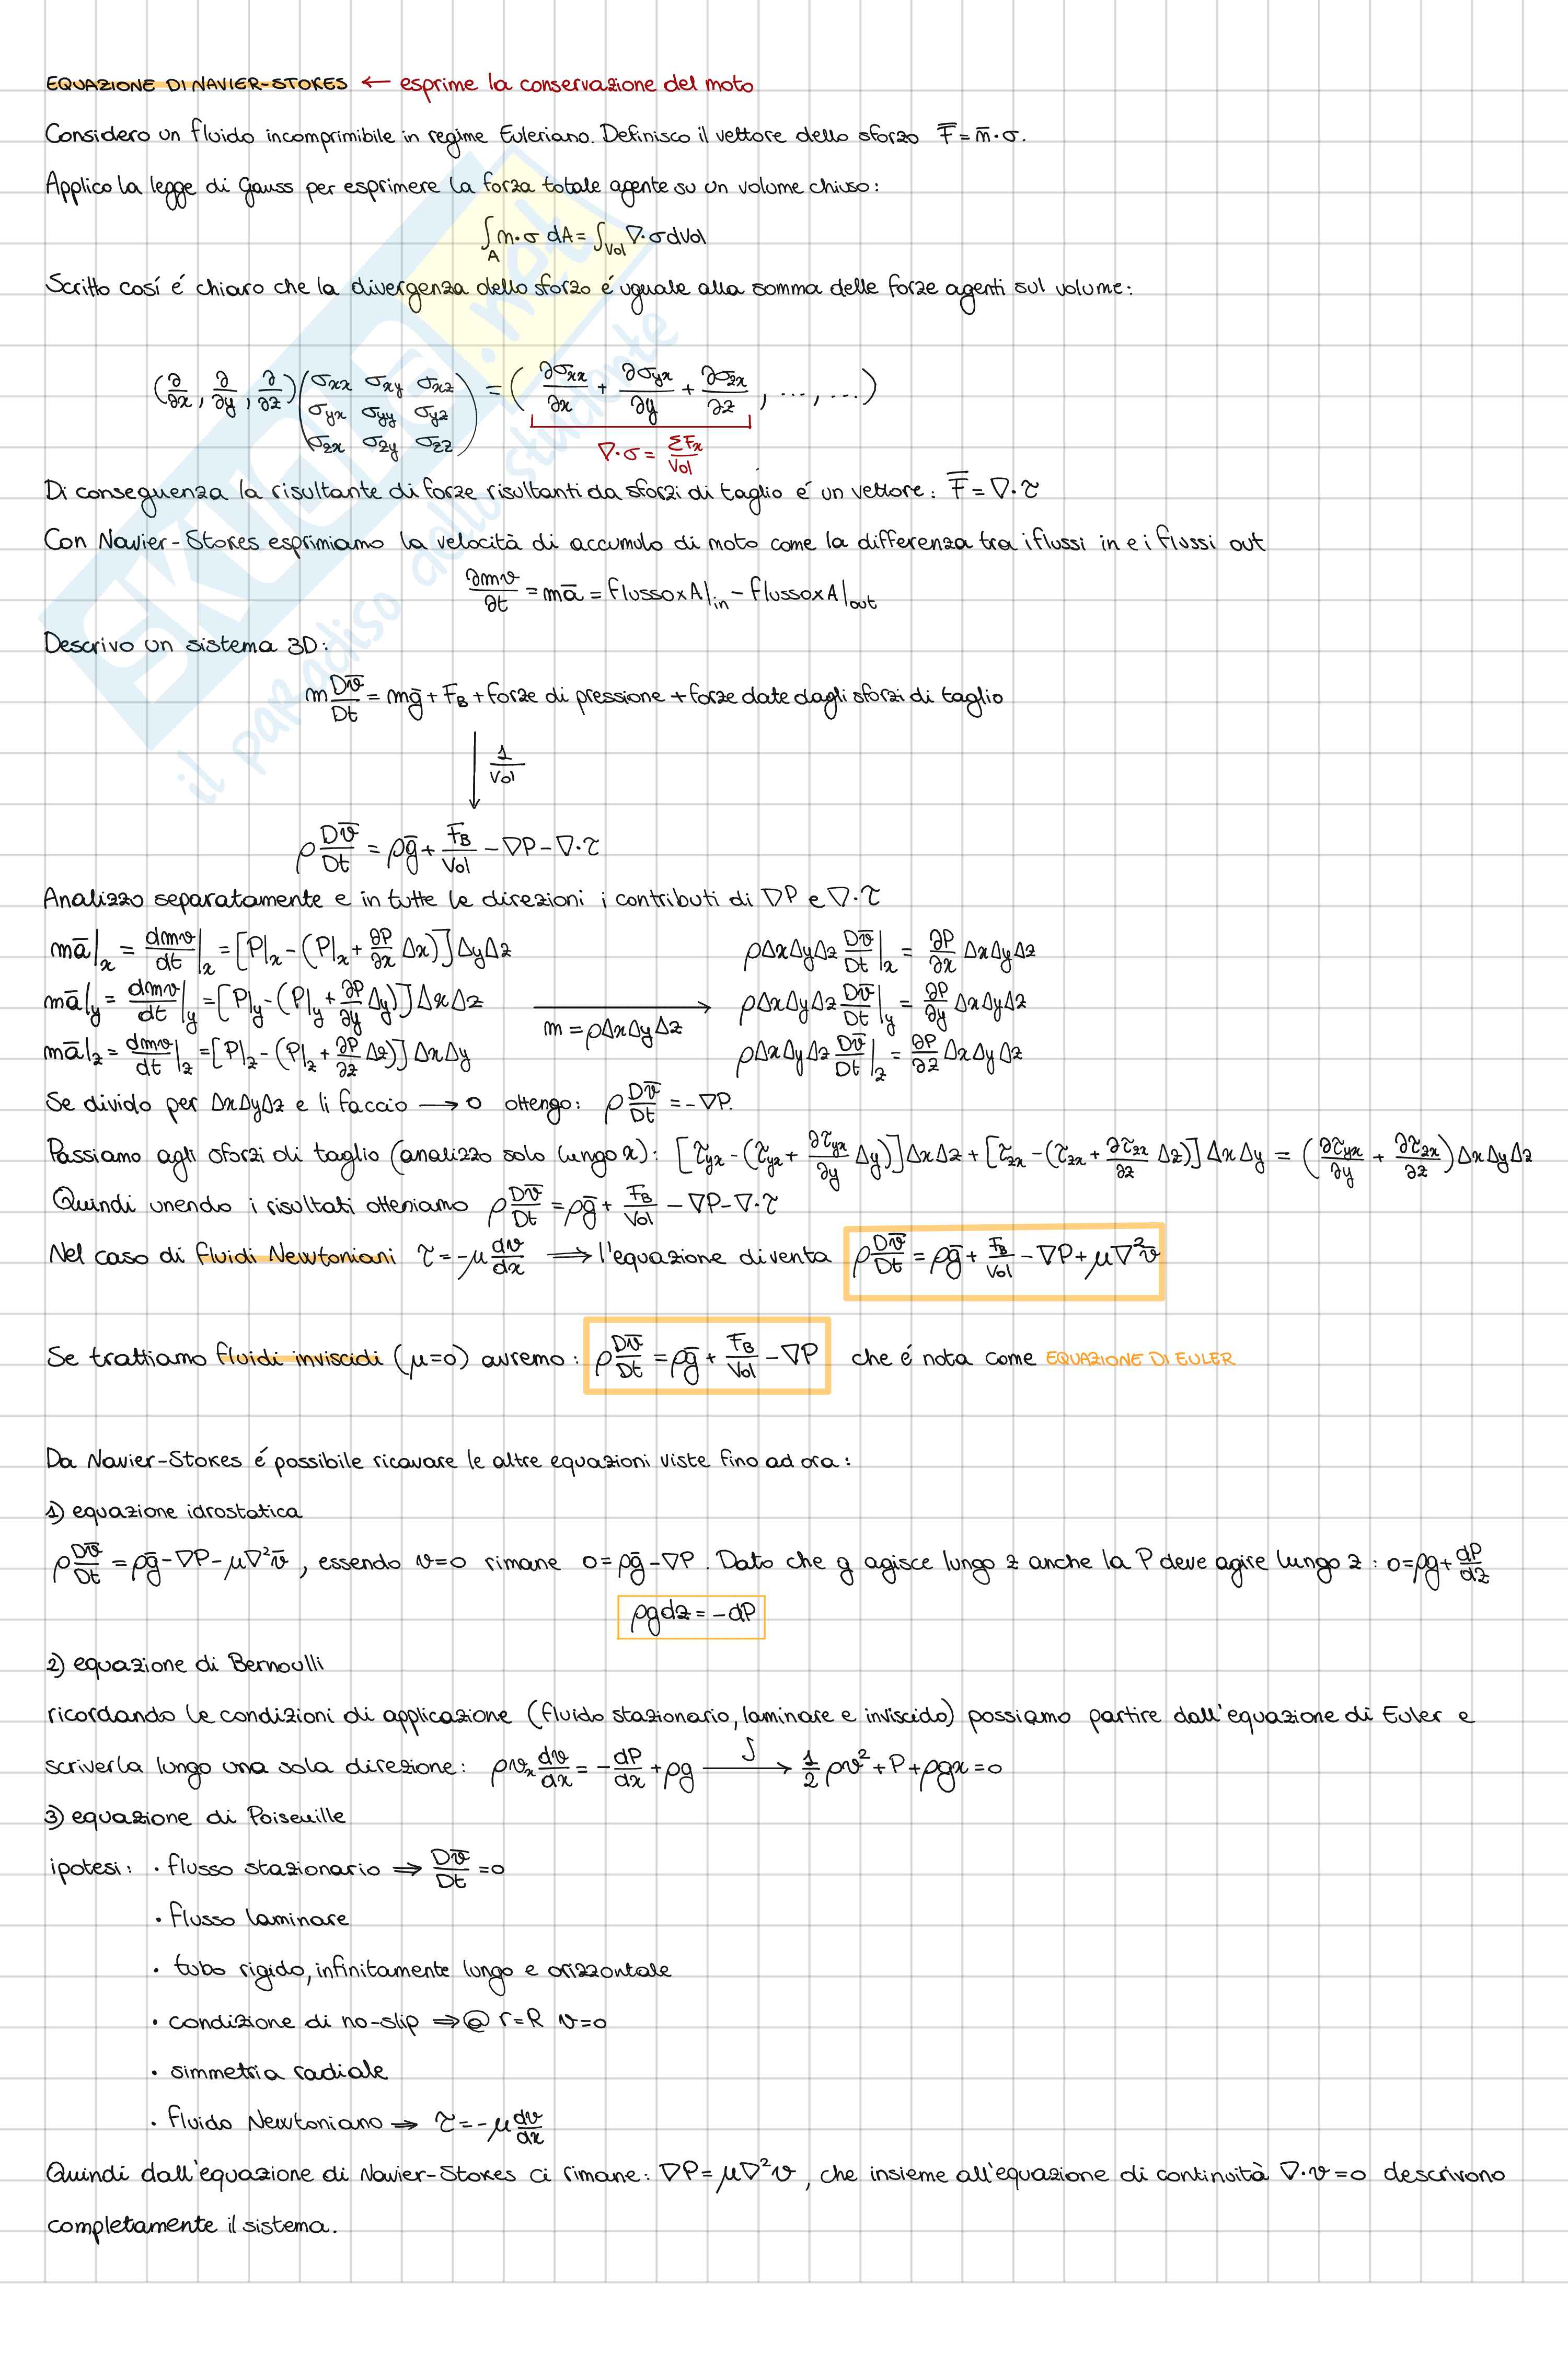 EQUAZIONE DI NAVIER-STOKES ← esprime la conservazione del moto
Considero un fluido incomprimibile in regime Euleriano. Definisco il vettore dello sforzo F̅ = n̅·σ.
Applico la legge di Gauss per esprimere la forza totale agente su un volume chiuso:
∫_A n·σ dA = ∫_Vol ∇·σ dVol
Scritto cosí é chiaro che la divergenza dello sforzo é uguale alla somma delle forze agenti sul volume:
(∂/∂x, ∂/∂y, ∂/∂z) (σxx σxy σxz
σyx σyy σyz
σzx σzy σzz) = (∂σxx/∂x + ∂σyx/∂y + ∂σzx/∂z, ..., ...)
∇·σ = ΣFx/Vol
Di conseguenza la risultante di forze risultanti da sforzi di taglio é un vettore: F̅ = ∇·τ
Con Navier-Stokes esprimiamo la velocità di accumulo di moto come la differenza tra i flussi in e i flussi out
∂mv/∂t = ma̅ = flusso×A|in − flusso×A|out
Descrivo un sistema 3D:
m Dv̅/Dt = mg̅ + F_B + forze di pressione + forze date dagli sforzi di taglio
↓ 1/Vol
ρ Dv̅/Dt = ρg̅ + F̅_B/Vol − ∇P − ∇·τ
Analizzo separatamente e in tutte le direzioni i contributi di ∇P e ∇·τ
ma̅|x = dmv/dt|x = [P|x − (P|x + ∂P/∂x Δx)] ΔyΔz   ρΔxΔyΔz Dv̅/Dt|x = ∂P/∂x ΔxΔyΔz
ma̅|y = dmv/dt|y = [P|y − (P|y + ∂P/∂y Δy)] ΔxΔz   → m = ρΔxΔyΔz   ρΔxΔyΔz Dv̅/Dt|y = ∂P/∂y ΔxΔyΔz
ma̅|z = dmv/dt|z = [P|z − (P|z + ∂P/∂z Δz)] ΔxΔy   ρΔxΔyΔz Dv̅/Dt|z = ∂P/∂z ΔxΔyΔz
Se divido per ΔxΔyΔz e li faccio → 0 ottengo: ρ Dv̅/Dt = −∇P.
Passiamo agli sforzi di taglio (analizzo solo lungo x): [τyx − (τyx + ∂τyx/∂y Δy)] ΔxΔz + [τzx − (τzx + ∂τzx/∂z Δz)] ΔxΔy = (∂τyx/∂y + ∂τzx/∂z) ΔxΔyΔz
Quindi unendo i risultati otteniamo ρ Dv̅/Dt = ρg̅ + F̅_B/Vol − ∇P − ∇·τ
Nel caso di fluidi Newtoniani τ = −μ dv/dx ⇒ l'equazione diventa ρ Dv̅/Dt = ρg̅ + F̅_B/Vol − ∇P + μ∇²v̅
Se trattiamo fluidi inviscidi (μ=0) avremo: ρ Dv̅/Dt = ρg̅ + F̅_B/Vol − ∇P che é nota come EQUAZIONE DI EULER
Da Navier-Stokes é possibile ricavare le altre equazioni viste fino ad ora:
1) equazione idrostatica
ρ Dv̅/Dt = ρg̅ − ∇P − μ∇²v̅, essendo v=0 rimane 0 = ρg̅ − ∇P. Dato che g agisce lungo z anche la P deve agire lungo z: 0 = ρg + dP/dz
ρgdz = −dP
2) equazione di Bernoulli
ricordando le condizioni di applicazione (fluido stazionario, laminare e inviscido) possiamo partire dall'equazione di Euler e
scriverla lungo una sola direzione: ρvx dv/dx = −dP/dx + ρg —∫→ 1/2 ρv² + P + ρgx = 0
3) equazione di Poiseuille
ipotesi: · flusso stazionario ⇒ Dv̅/Dt = 0
· flusso laminare
· tubo rigido, infinitamente lungo e orizzontale
· condizione di no-slip ⇒ @ r=R v=0
· simmetria radiale
· fluido Newtoniano ⇒ τ = −μ dv/dx
Quindi dall'equazione di Navier-Stokes ci rimane: ∇P = μ∇²v, che insieme all'equazione di continuità ∇·v=0 descrivono
completamente il sistema.
SKUOLA.net
il paradiso dello studente